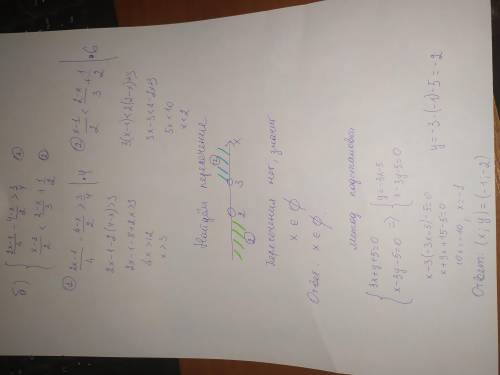 б) { (2x-1)/4 - (4-x)/2 > 3/4 ①
(x-1)/2 < (2-x)/3 + 1/2 ②
① (2x-1)/4 - (4-x)/2 > 3/4 | ·4
2x-1-2(4-x)>3
2x-1-8+2x>3
4x>12
x>3
② (x-1)/2 < (2-x)/3 + 1/2 | ·6
3(x-1)<2(2-x)+3
3x-3<4-2x+3
5x<10
x<2
Найдём пересечение
② 2 3 x
Пересечения нет, значит
x ∈ ∅
Ответ. x ∈ ∅.
метод подстановки
{ 3x+y+5=0 => { y=-3x-5
x-3y-5=0 x-3y-5=0
x-3(-3x-5)-5=0
x+9x+15-5=0
10x=-10, x=-1 y=-3·(-1)-5=-2
Ответ: (x;y)=(-1;-2)